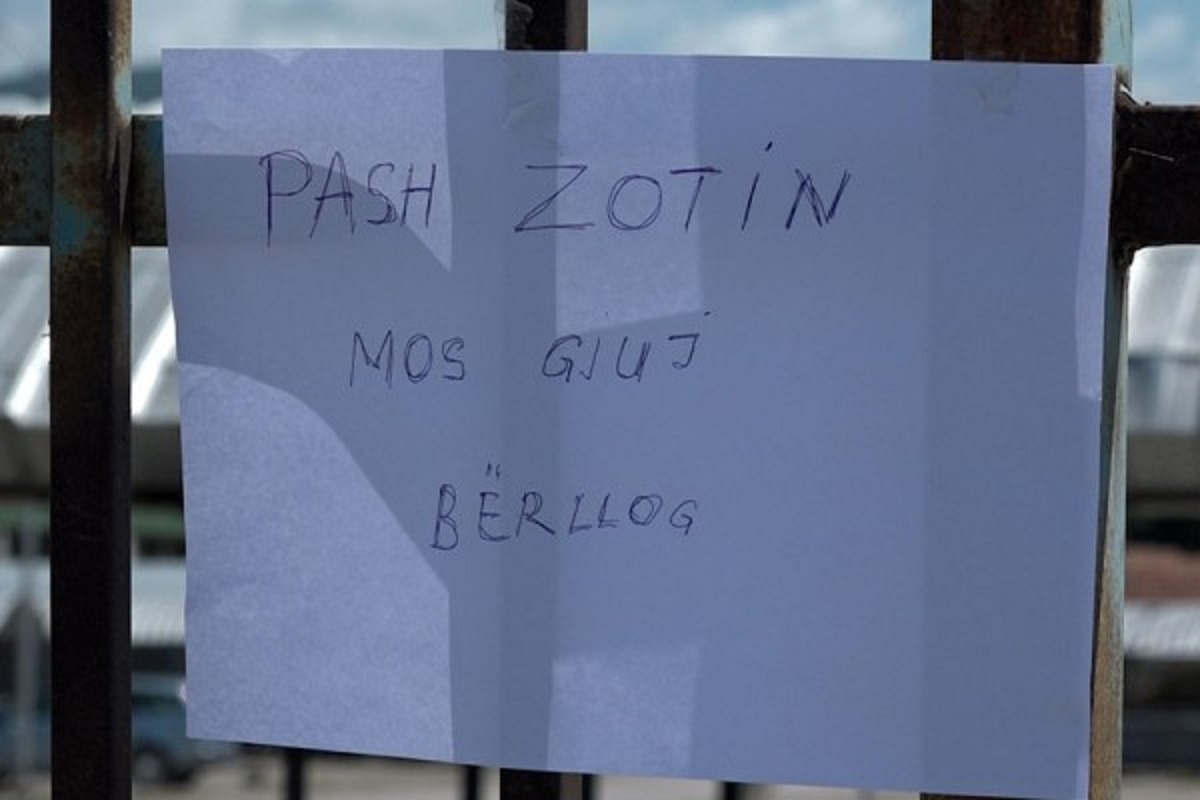 PASH ZOTIN
MOS GJUJ
BËRLLOG